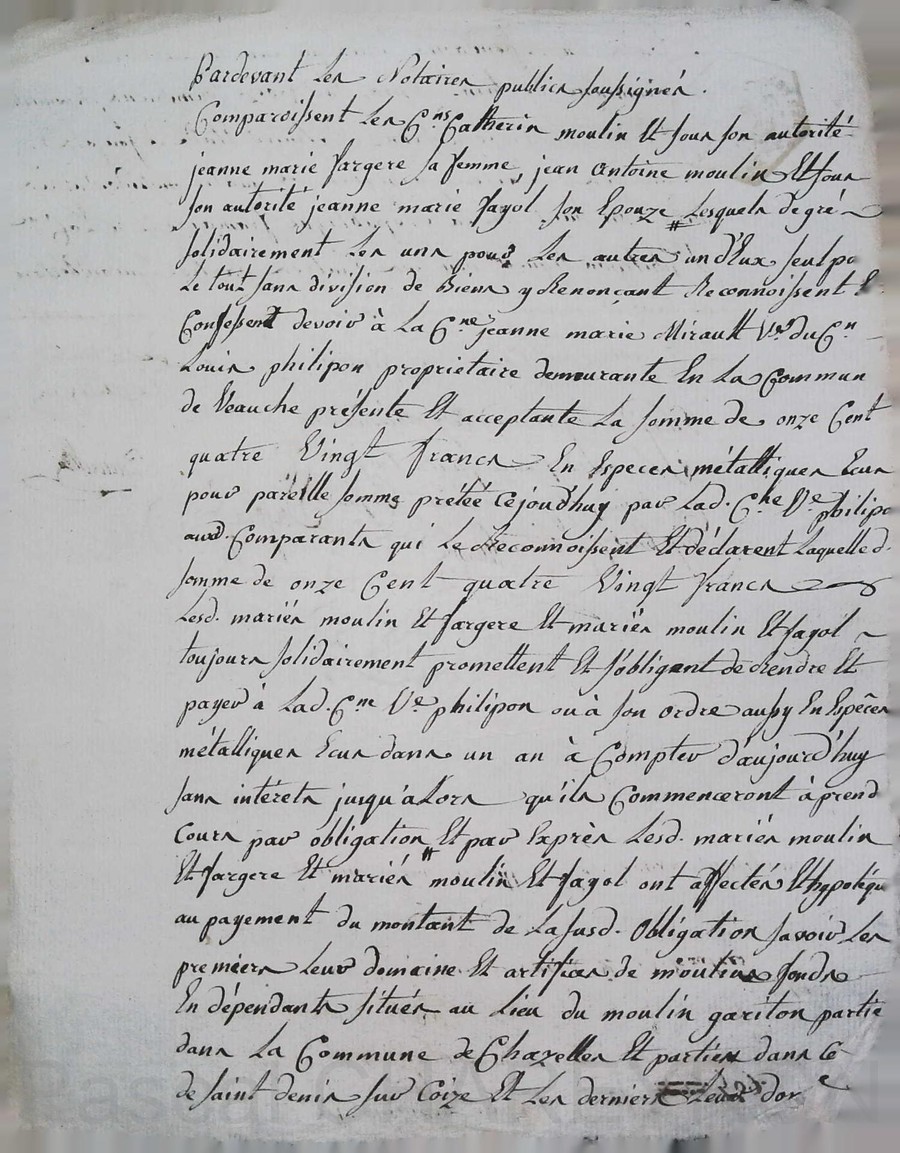 Pardevant Les Notaires publics soussignés.
Comparoissent Les C.ns Catherin moulin Et sous son autorité
jeanne marie fargere sa femme, jean Antoine moulin Et sous
son autorité jeanne marie fayol son Epouze # Lesquels de gré
solidairement Les uns pour Les autres un d'Eux seul po
Le tout sans division de Biens y Renonçant Reconnoissent E
Confessent devoir à La C.ne jeanne marie Mirault V.ve du C.n
Louis philipon propriétaire demeurante En La Commun
de Veauche présente Et acceptante La somme de onze Cent
quatre Vingt francs En Especes métalliques Ecus
pour pareille somme prétéé cejourd'huy par Lad. C.ne V.e philipo
auxd. Comparants qui Le Reconnoissent Et déclarent Laquelle d.
somme de onze Cent quatre Vingt francs
Lesd. mariés moulin Et fargere Et mariés moulin Et fayol
toujours solidairement promettent Et s'obligent de Rendre Et
payer à Lad. C.ne V.e philipon ou à son ordre aussy En Espéces
métalliques Ecus dans un an à Compter d'aujourd'huy
sans intérets jusqu'alors qu'ils Commenceront à prend
Cours par obligation Et par Exprès Lesd. mariés moulin
Et fargere Et mariés # moulin Et fayol ont affectés Et hypotéqu
au payement du montant de La susd. Obligation savoir Les
premiers Leur domaine Et artifices de moulins fonds
En dépendants situés au Lieu du moulin gariton partie
dans La Commune de Chazelles Et parties dans Ce
de saint denis sur Coize Et Les derniers Leur dor